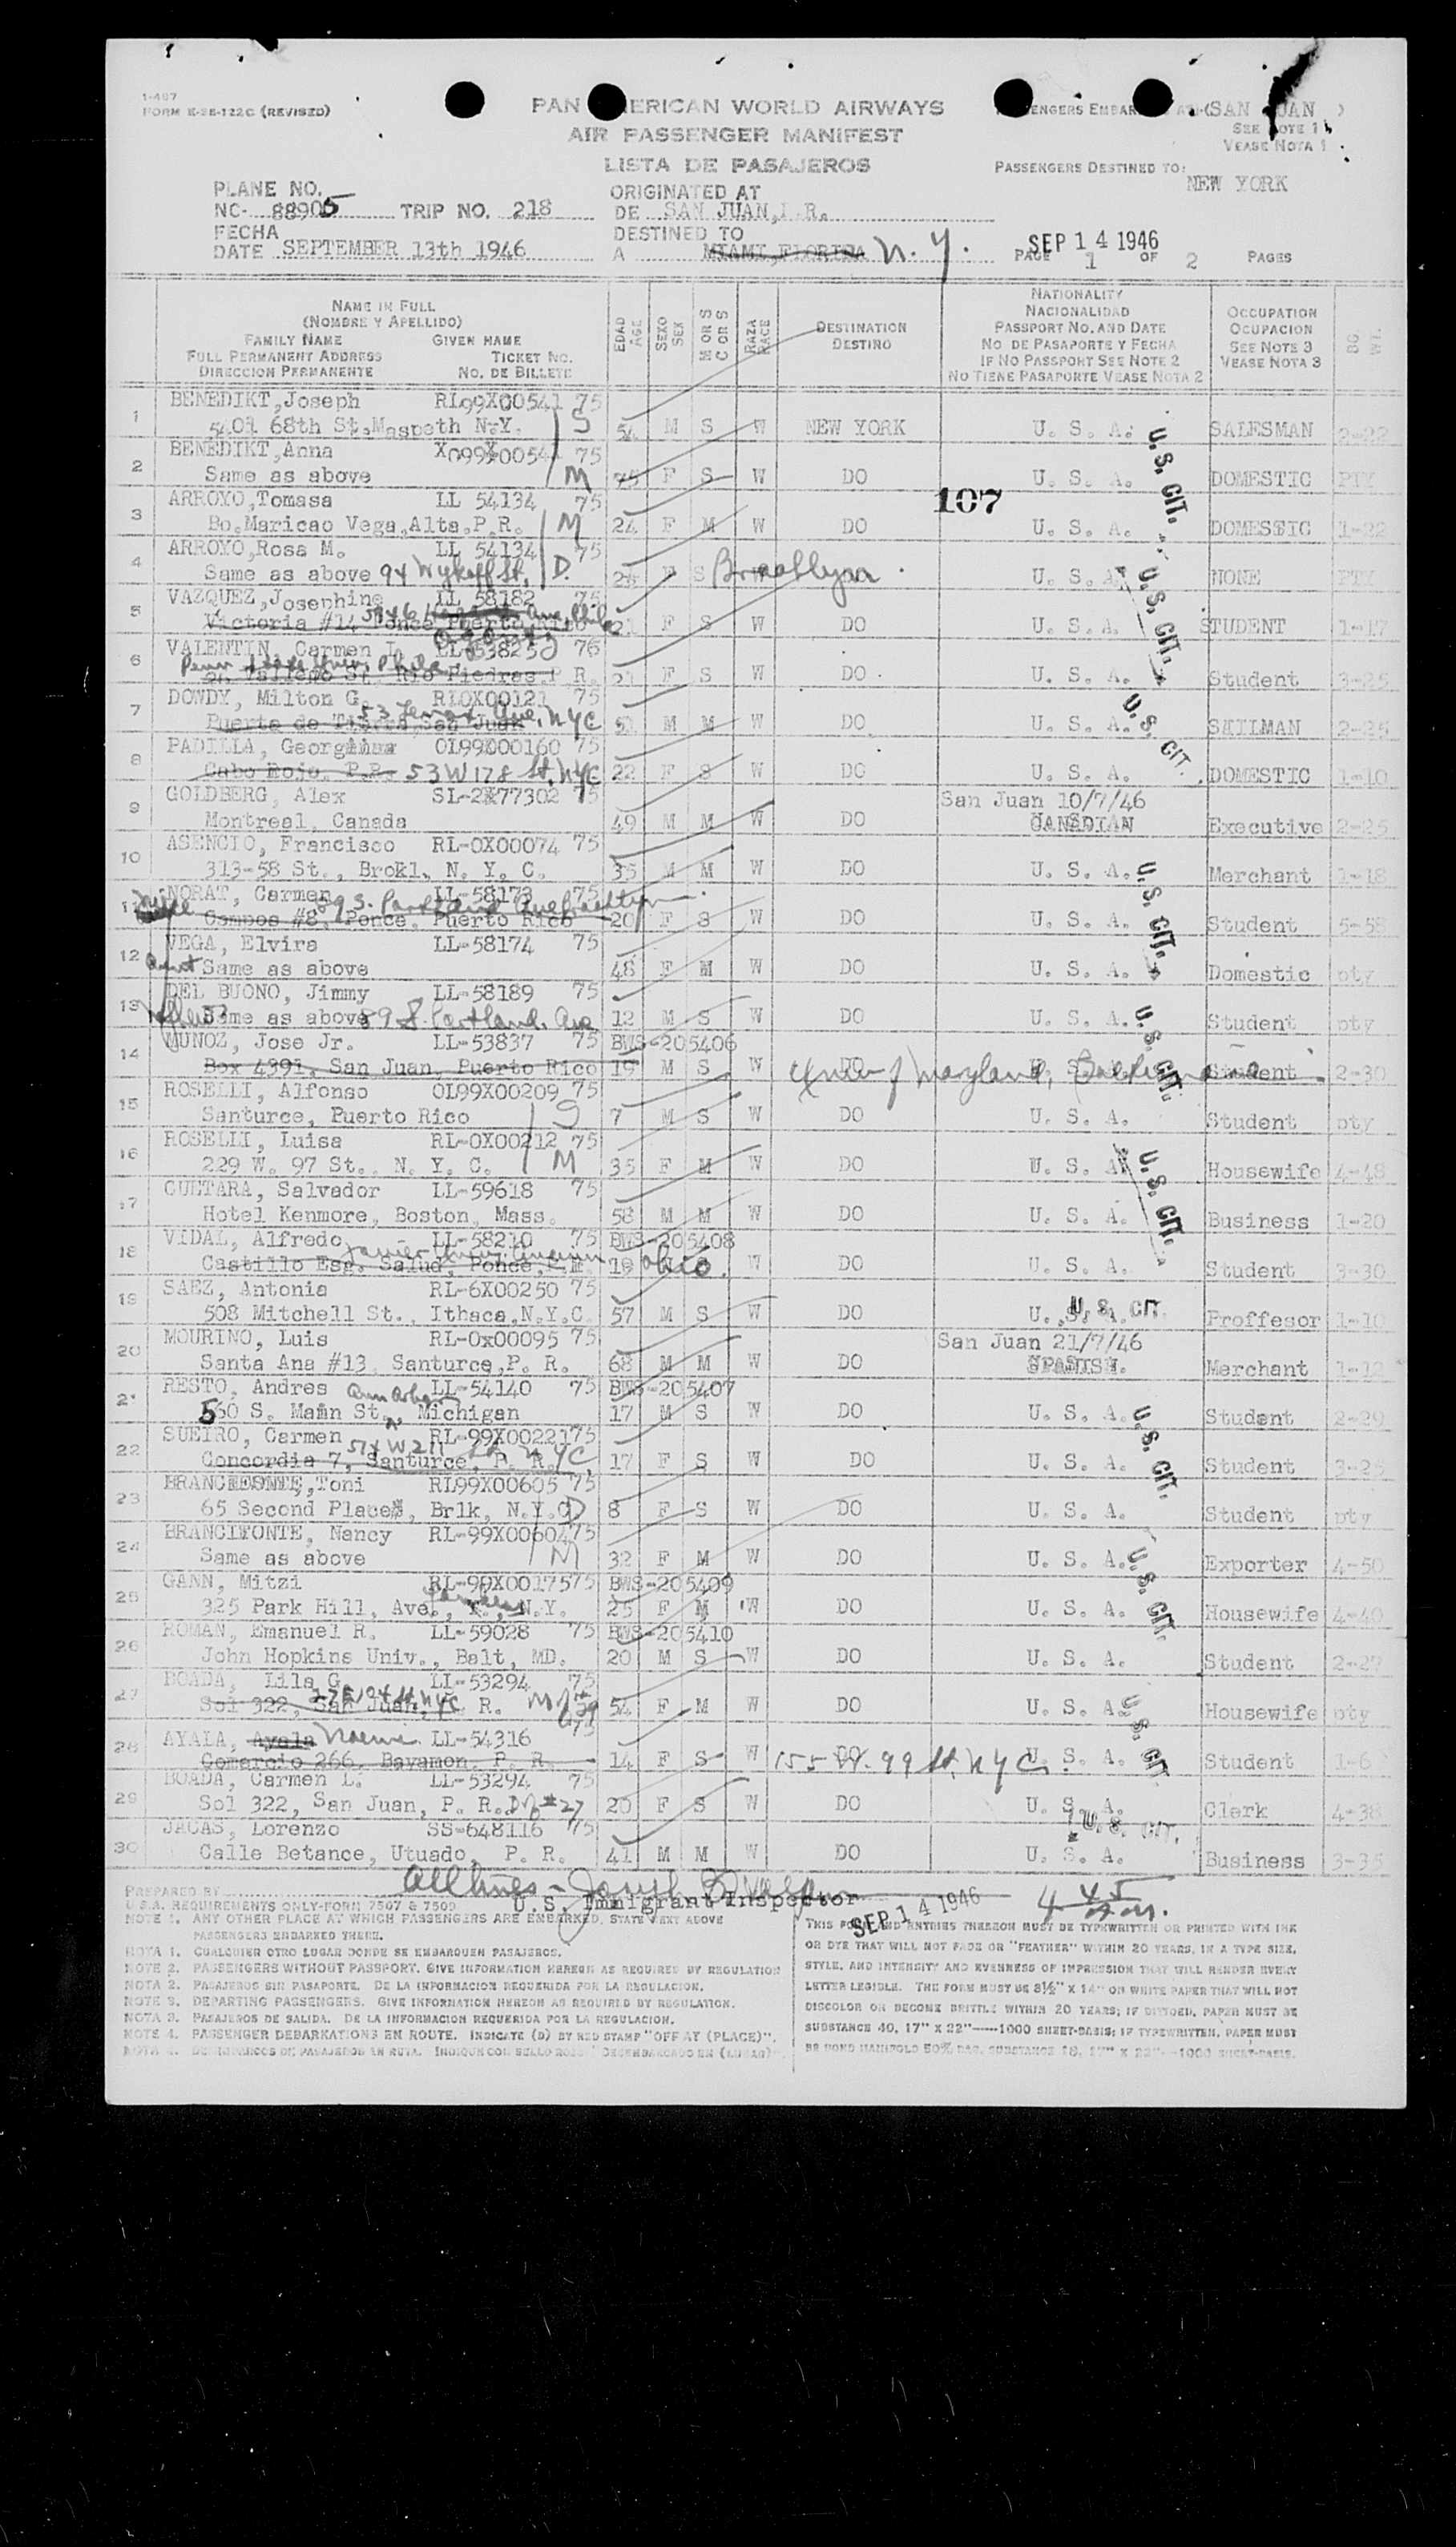 1-467
FORM K-SE-122C (REVISED)
PAN AMERICAN WORLD AIRWAYS
AIR PASSENGER MANIFEST
LISTA DE PASAJEROS
SAN JUAN )
SEE NOTE 1
VEASE NOTA 1
PASSENGERS DESTINED TO:
NEW YORK
PLANE NO.
NC- 88905 TRIP NO. 218
ORIGINATED AT
DE SAN JUAN, P.R.
FECHA
DATE SEPTEMBER 13th 1946
DESTINED TO
A MIAMI, FLORIDA N.Y.
SEP 14 1946
PAGE 1 OF 2 PAGES
NAME IN FULL
(NOMBRE Y APELLIDO)
FAMILY NAME GIVEN NAME
FULL PERMANENT ADDRESS TICKET NO.
DIRECCION PERMANENTE NO. DE BILLETE
EDAD AGE
SEXO SEX
M OR S C OR S
RAZA RACE
DESTINATION
DESTINO
NATIONALITY
NACIONALIDAD
PASSPORT NO. AND DATE
NO DE PASAPORTE Y FECHA
IF NO PASSPORT SEE NOTE 2
NO TIENE PASAPORTE VEASE NOTA 2
OCCUPATION
OCUPACION
SEE NOTE 3
VEASE NOTA 3
1 BENEDIKT,Joseph RL99X00541 75
5401 68th St.,Maspeth N.Y. S 54 M S W NEW YORK U. S. A. SALESMAN 2-22
2 BENEDIKT,Anna 75
Same as above M 75 F S W DO U. S. A. DOMESTIC PTY
U.S. CIT.
107
3 ARROYO,Tomasa LL 54134 75
Bo.Maricao Vega,Alta,P.R. M 24 F M W DO U. S. A. DOMESTIC 1-22
4 ARROYO,Rosa M. LL 54134 75
Same as above 94 Wykoff St. D. F S Brooklyn U. S. A. NONE PTY
5 VAZQUEZ,Josephine LL 58182 75
Victoria #14 Ponce Puerto Rico 21 F S W DO U. S. A. STUDENT 1-17
U.S. CIT.
6 VALENTIN, Carmen L. LL-53825 76
Rio Piedras P R. 21 F S W DO U. S. A. Student 3-25
7 DOWDY, Milton G. RLOX00121 75
Puerta de Tierra,San Juan 53 Lenox Ave. NYC 51 M M W DO U. S. A. SAILMAN 2-25
U.S. CIT.
8 PADILLA, Georgina OL99X000160 75
Cabo Rojo, P.R. 53 W 128 St. NYC 22 F S W DO U. S. A. DOMESTIC 1-10
9 GOLDBERG, Alex SL-2X77302 75 San Juan 10/7/46
Montreal, Canada 49 M M W DO CANADIAN Executive 2-25
10 ASENCIO, Francisco RL-OX00074 75
313-58 St., Brokl, N. Y. C. 35 M M W DO U. S. A. Merchant 1-18
U.S. CIT.
11 NORAT, Carmen LL-58173 75
Campos #8, Ponce, Puerto Rico 89 S. Portland Ave Brooklyn 20 F S W DO U. S. A. Student 5-58
12 VEGA, Elvira LL-58174 75
Aunt Same as above 48 F M W DO U. S. A. Domestic pty
13 DEL BUONO, Jimmy LL-58189 75
Same as above 89 S. Portland Ave 12 M S W DO U. S. A. Student pty
U.S. CIT.
14 MUNOZ, Jose Jr. LL-53837 75 BWS-205406
Box 4391, San Juan, Puerto Rico 19 M S W DO Univ of Maryland, Student 2-30
15 ROSELLI, Alfonso OL99X00209 75
Santurce, Puerto Rico S 7 M S W DO U. S. A. Student pty
16 ROSELLI, Luisa RL-OX00212 75
229 W. 97 St., N. Y. C. M 35 F M W DO U. S. A. Housewife 4-48
U.S. CIT.
17 GUETARA, Salvador LL-59618 75
Hotel Kenmore, Boston, Mass. 58 M M W DO U. S. A. Business 1-20
18 VIDAL, Alfredo LL-58210 75 BWS-205408
Castillo Esq. Salud, Ponce,P.R 19 Ohio. W DO U. S. A. Student 3-30
19 SAEZ, Antonia RL-6X00250 75
508 Mitchell St., Ithaca,N.Y.C. 57 M S W DO U. S. A. U.S. CIT. Proffesor 1-10
20 MOURINO, Luis RL-Ox00095 75 San Juan 21/7/46
Santa Ana #13, Santurce,P. R. 68 M M W DO SPANISH. Merchant 1-12
21 RESTO, Andres LL-54140 75 BWS-205407
560 S. Main St. Ann Arbor Michigan 17 M S W DO U. S. A. Student 2-29
U.S. CIT.
22 SUEIRO, Carmen RL-99X00221 75
Concordia 7, Santurce, P. R. NYC 17 F S W DO U. S. A. Student 3-25
23 Toni RL99X00605 75
65 Second Place, Brlk, N.Y.C D 8 F S W DO U. S. A. Student pty
24 BRANCIFONTE, Nancy RL-99X00604 75
Same as above M 32 F M W DO U. S. A. Exporter 4-50
U.S. CIT.
25 GANN, Mitzi RL-99X00175 75 BWS-205409
325 Park Hill, Ave., Yonkers N.Y. 25 F M W DO U. S. A. Housewife 4-40
26 ROMAN, Emanuel R. LL-59028 75 BWS-205410
John Hopkins Univ., Balt, MD. 20 M S W DO U. S. A. Student 2-27
27 BOADA, Lila G. LL-53294 75
Sol 322, San Juan, P. R. 54 F M W DO U. S. A. Housewife pty
U.S. CIT.
28 AYALA, Ayala Noemi LL-54316 75
Comercio 266, Bayamon P. R. 14 F S W DO 155 W. 99 St. NYC. U. S. A. Student 1-6
29 BOADA, Carmen L. LL-53294 75
Sol 322, San Juan, P. R. D of #27 20 F S W DO U. S. A. Clerk 4-38
30 JACAS, Lorenzo SS-648116 75 U.S. CIT.
Calle Betance, Utuado, P. R. 41 M M W DO U. S. A. Business 3-35
PREPARED BY
All lines - Joseph
U.S. Immigrant Inspector
SEP 14 1946
U.S.A. REQUIREMENTS ONLY-FORM 7507 & 7509
NOTE 1. ANY OTHER PLACE AT WHICH PASSENGERS ARE EMBARKED, STATE NEXT ABOVE
PASSENGERS EMBARKED THERE.
NOTA 1. CUALQUIER OTRO LUGAR DONDE SE EMBARQUEN PASAJEROS.
NOTE 2. PASSENGERS WITHOUT PASSPORT. GIVE INFORMATION HEREON AS REQUIRED BY REGULATION
NOTA 2. PASAJEROS SIN PASAPORTE. DE LA INFORMACION REQUERIDA POR LA REGULACION.
NOTE 3. DEPARTING PASSENGERS. GIVE INFORMATION HEREON AS REQUIRED BY REGULATION.
NOTA 3. PASAJEROS DE SALIDA. DE LA INFORMACION REQUERIDA POR LA REGULACION.
NOTE 4. PASSENGER DEBARKATIONS EN ROUTE. INDICATE (D) BY RED STAMP "OFF AT (PLACE)".
NOTA 4. DESEMBARCOS DE PASAJEROS EN RUTA. INDIQUE CON SELLO ROJO "DESEMBARCADO EN (LUGAR)".
THIS FORM AND ENTRIES THEREON MUST BE TYPEWRITTEN OR PRINTED WITH INK
OR DYE THAT WILL NOT FADE OR "FEATHER" WITHIN 20 YEARS, IN A TYPE SIZE,
STYLE, AND INTENSITY AND EVENNESS OF IMPRESSION THAT WILL RENDER EVERY
LETTER LEGIBLE. THE FORM MUST BE 8½" X 14" ON WHITE PAPER THAT WILL NOT
DISCOLOR OR BECOME BRITTLE WITHIN 20 YEARS; IF DITTOED, PAPER MUST BE
SUBSTANCE 40, 17" X 22"—1000 SHEET-BASIS; IF TYPEWRITTEN, PAPER MUST
BE BOND MANIFOLD 50% RAG, SUBSTANCE 18, 17" X 22"—1000 SHEET-BASIS.